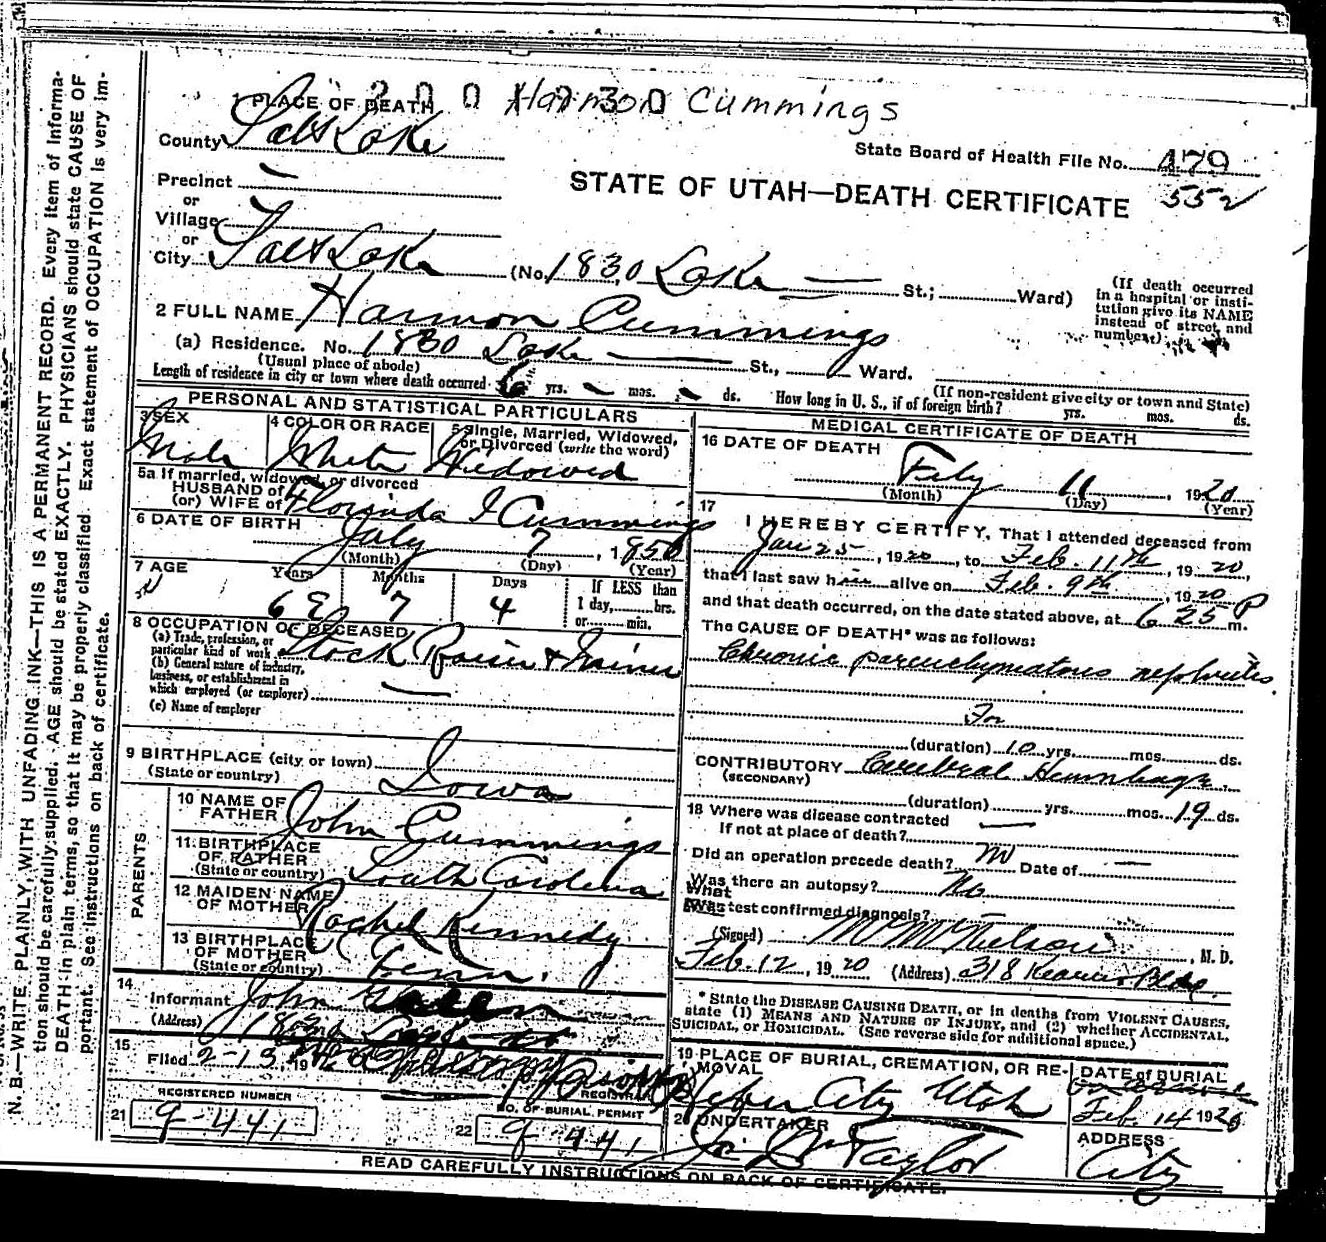 N. B.—WRITE PLAINLY, WITH UNFADING INK—THIS IS A PERMANENT RECORD. Every item of informa-
tion should be carefully supplied. AGE should be stated EXACTLY. PHYSICIANS should state CAUSE OF
DEATH in plain terms, so that it may be properly classified. Exact statement of OCCUPATION is very im-
portant. See instructions on back of certificate.
Harmon Cummings
1 PLACE OF DEATH
County Salt Lake
State Board of Health File No. 479
552
STATE OF UTAH—DEATH CERTIFICATE
Precinct
or
Village
or
City Salt Lake (No. 1830 Lake St.; Ward)
(If death occurred
in a hospital or insti-
tution give its NAME
instead of street and
number)
2 FULL NAME Harmon Cummings
(a) Residence. No. 1830 Lake St., Ward.
(Usual place of abode)
(If non-resident give city or town and State)
Length of residence in city or town where death occurred 6 yrs. mos. ds. How long in U. S., if of foreign birth? yrs. mos. ds.
PERSONAL AND STATISTICAL PARTICULARS
3 SEX
Male
4 COLOR OR RACE
White
5 Single, Married, Widowed,
or Divorced (write the word)
Widowed
5a If married, widowed, or divorced
HUSBAND of
(or) WIFE of Florinda I Cummings
6 DATE OF BIRTH
July 7, 1850
(Month) (Day) (Year)
7 AGE
Years Months Days
If LESS than
1 day, hrs.
or min.
7 4
8 OCCUPATION OF DECEASED
(a) Trade, profession, or
particular kind of work Stock Raiser & Miner
(b) General nature of industry,
business, or establishment in
which employed (or employer)
(c) Name of employer
9 BIRTHPLACE (city or town)
(State or country) Iowa
PARENTS
10 NAME OF
FATHER John Cummings
11 BIRTHPLACE
OF FATHER
(State or country) South Carolina
12 MAIDEN NAME
OF MOTHER Rachel Kennedy
13 BIRTHPLACE
OF MOTHER
(State or country) Tenn.
14
Informant John
(Address)
15
Filed 2-13, 19
REGISTRAR
REGISTERED NUMBER
21 9-441
NO. OF BURIAL PERMIT
22 9-441
MEDICAL CERTIFICATE OF DEATH
16 DATE OF DEATH
Feby 11, 1920
(Month) (Day) (Year)
17
I HEREBY CERTIFY, That I attended deceased from
Jan 25, 1920, to Feb. 11th, 1920,
that I last saw him alive on Feb. 9th, 1920
and that death occurred, on the date stated above, at 6 25 P m.
The CAUSE OF DEATH* was as follows:
Chronic parenchymatous nephritis
For
(duration) 10 yrs. mos. ds.
CONTRIBUTORY Cerebral Hemorrhage
(SECONDARY)
(duration) yrs. mos. 19 ds.
18 Where was disease contracted
If not at place of death?
Did an operation precede death? no Date of
Was there an autopsy? No
What test confirmed diagnosis?
(Signed) M M Nielson, M. D.
Feb. 12, 1920 (Address) 318 Kearns Bldg.
* State the DISEASE CAUSING DEATH, or in deaths from VIOLENT CAUSES,
state (1) MEANS AND NATURE OF INJURY, and (2) whether ACCIDENTAL,
SUICIDAL, or HOMICIDAL. (See reverse side for additional space.)
19 PLACE OF BURIAL, CREMATION, OR RE-
MOVAL
Heber City Utah
DATE of BURIAL
Feb. 14 1920
20 UNDERTAKER
Taylor
ADDRESS
City
READ CAREFULLY INSTRUCTIONS ON BACK OF CERTIFICATE.